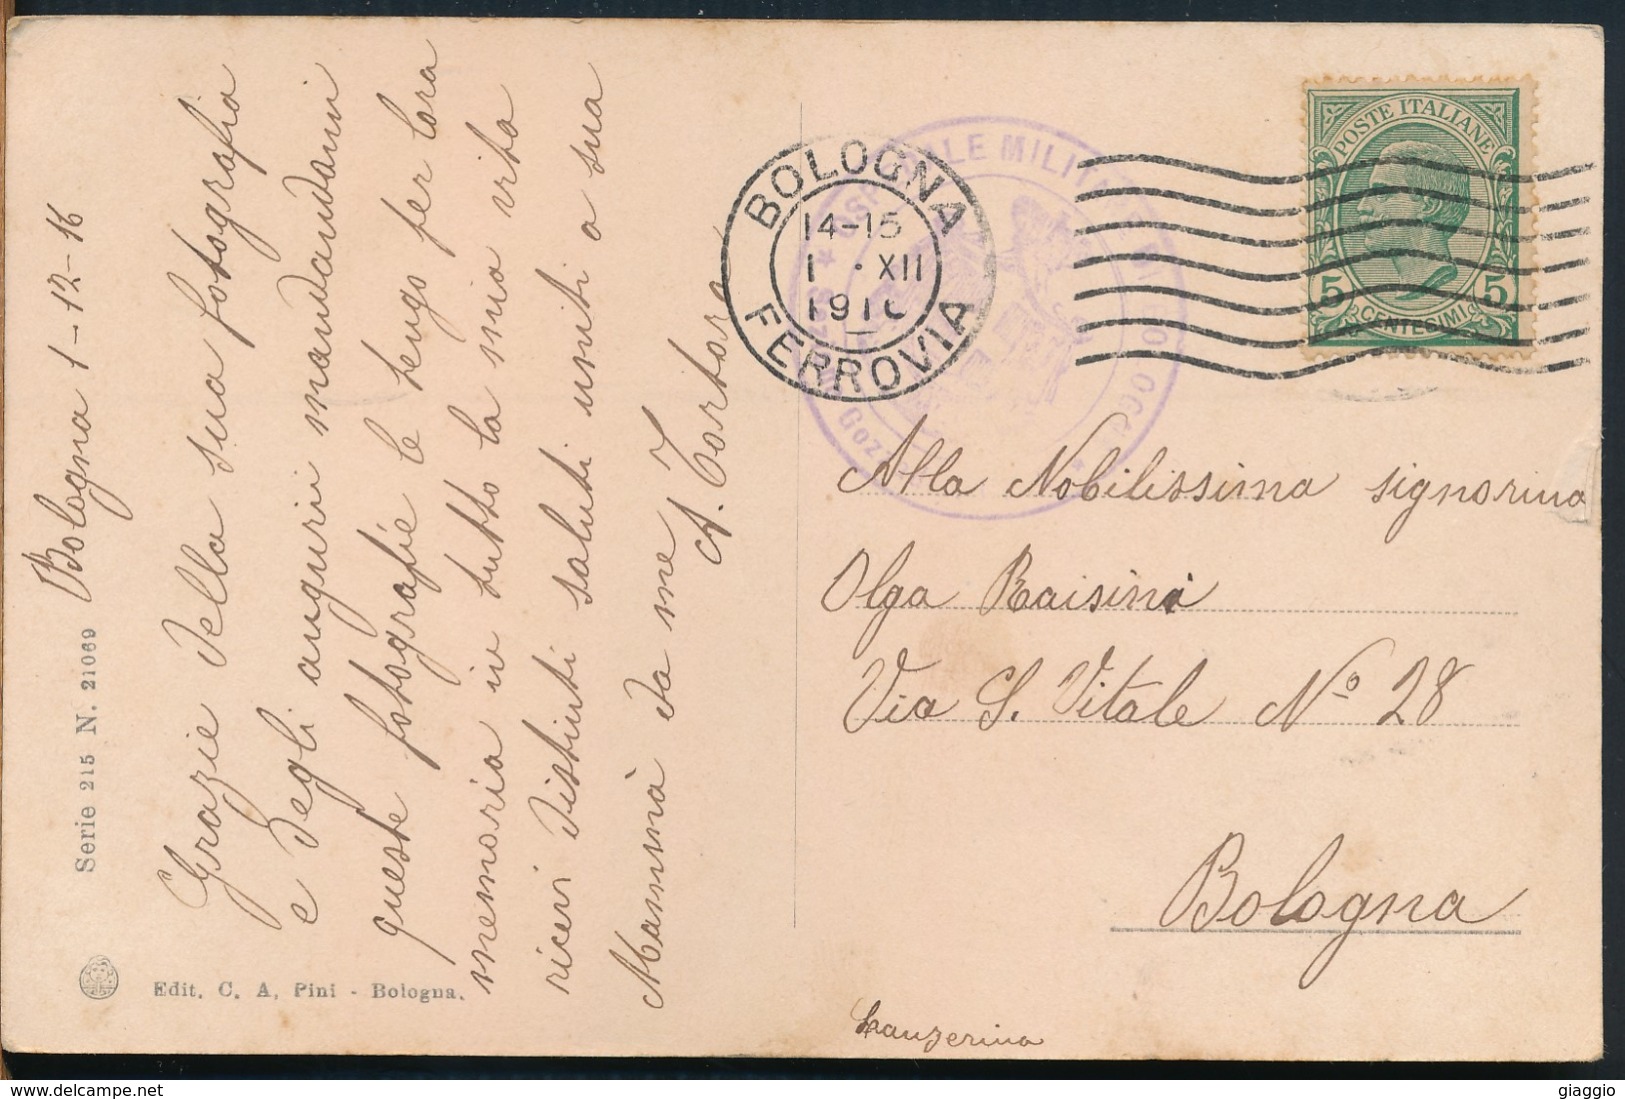 Bologna 1-12-16
Grazie della sua fotografia
e degli auguri mandandomi
queste fotografie le tengo per cara
memoria in tutto la mia vita
ricevi distinti saluti uniti a sua
Mammà da me
A. Tortora
Serie 215 N. 21069
Edit. C. A. Pini - Bologna.
BOLOGNA
14-15
1 · XII
191
FERROVIA
OSPEDALE MILITARE DI
POSTE ITALIANE
5 5
CENTESIMI
Alla Nobilissima signorina
Olga Raisini
Via S. Vitale Nº 28
Bologna
Lanzerina
giaggio